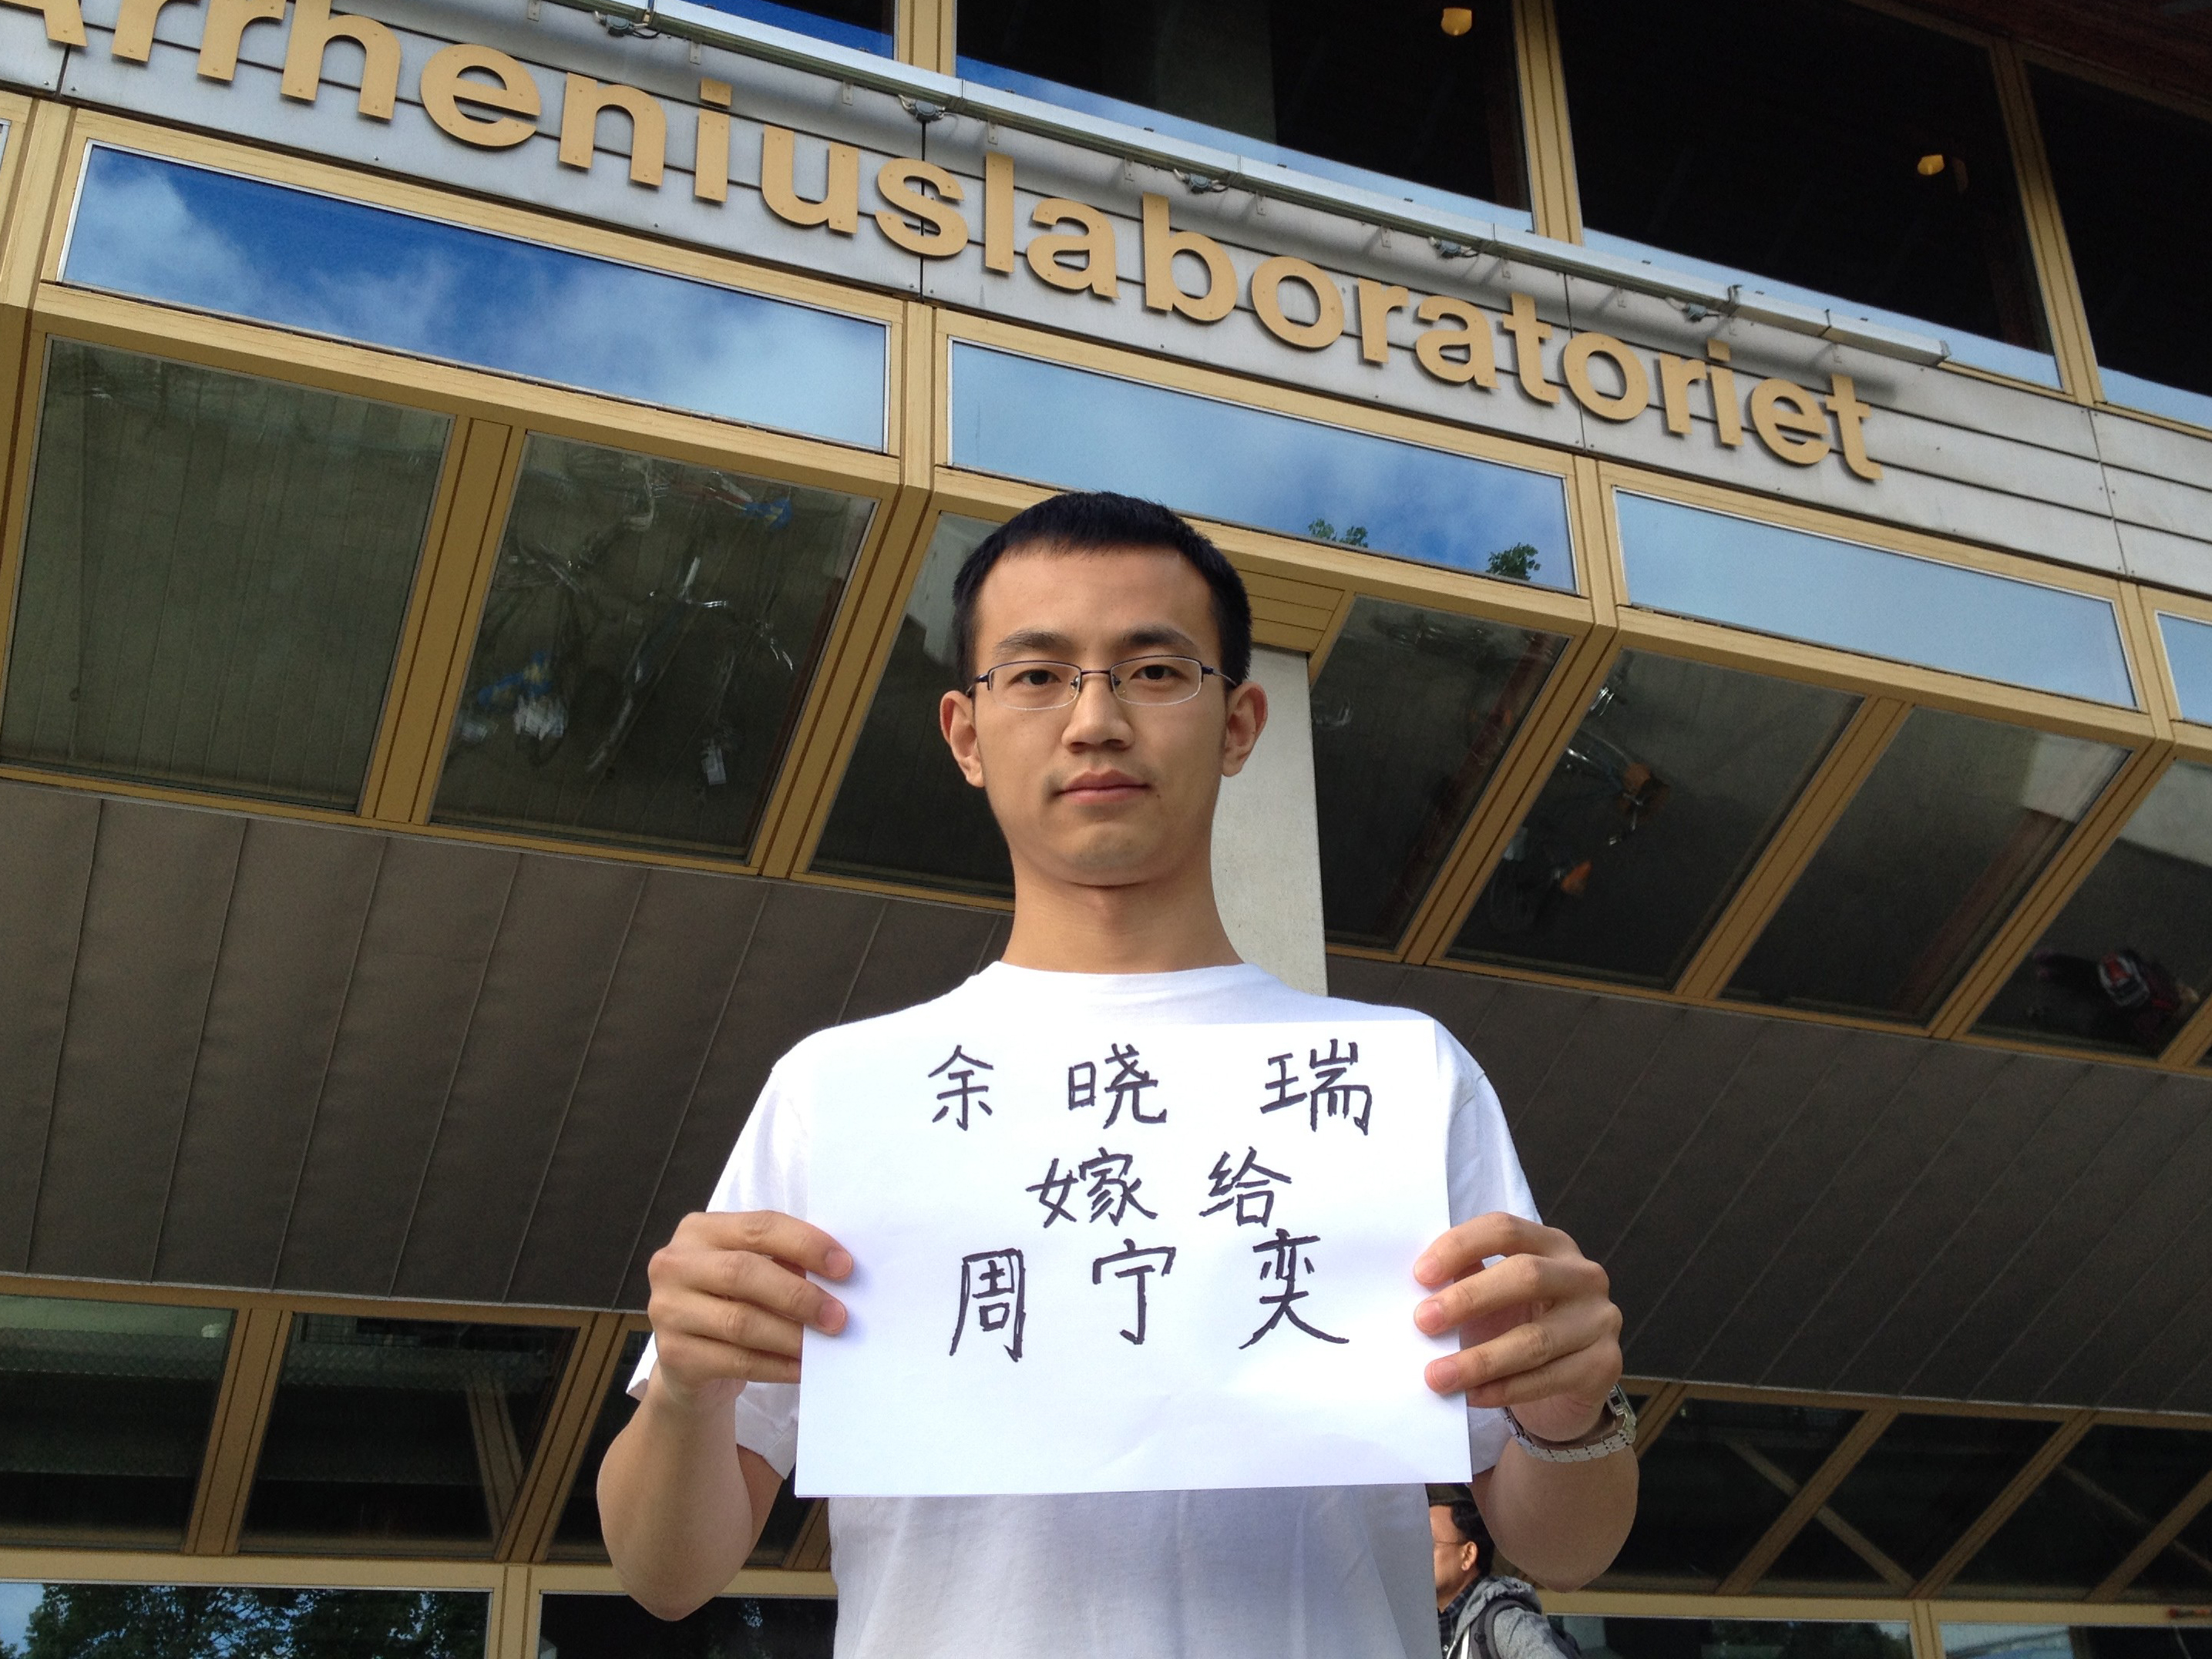 Arrheniuslaboratoriet
余晓瑞
嫁给
周宁奕